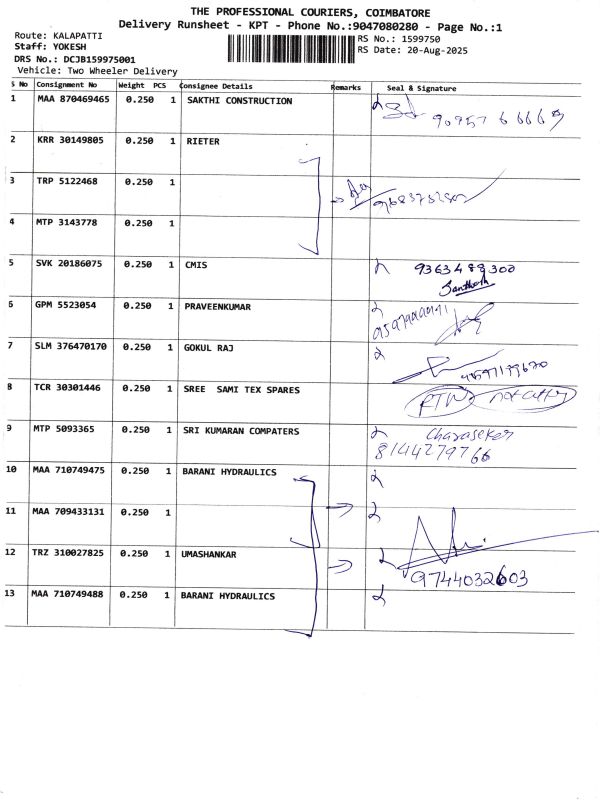 THE PROFESSIONAL COURIERS, COIMBATORE
Delivery Runsheet - KPT - Phone No.:9047080280 - Page No.:1
Route: KALAPATTI
Staff: YOKESH
DRS No.: DCJB159975001
Vehicle: Two Wheeler Delivery
RS No.: 1599750
RS Date: 20-Aug-2025
S No Consignment No Weight PCS Consignee Details Remarks Seal & Signature
1 MAA 870469465 0.250 1 SAKTHI CONSTRUCTION
2 KRR 30149805 0.250 1 RIETER
3 TRP 5122468 0.250 1
4 MTP 3143778 0.250 1
5 SVK 20186075 0.250 1 CMIS 9363488300
Santhosh
6 GPM 5523054 0.250 1 PRAVEENKUMAR
7 SLM 376470170 0.250 1 GOKUL RAJ
8 TCR 30301446 0.250 1 SREE SAMI TEX SPARES
9 MTP 5093365 0.250 1 SRI KUMARAN COMPATERS
8144279766
10 MAA 710749475 0.250 1 BARANI HYDRAULICS
11 MAA 709433131 0.250 1
12 TRZ 310027825 0.250 1 UMASHANKAR
9744032603
13 MAA 710749488 0.250 1 BARANI HYDRAULICS